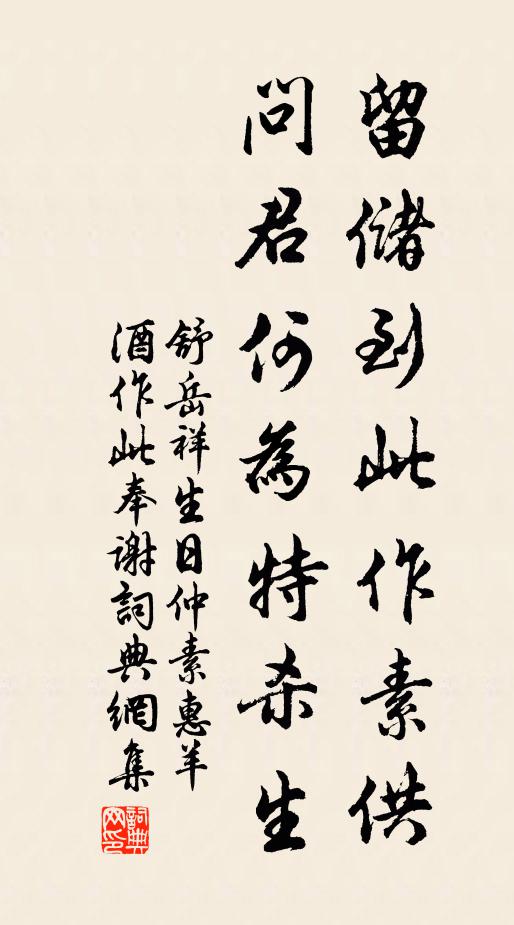 留儲到此作素供
問君何為特杀生
舒岳祥生日仲素惠羊
酒作此奉謝詞典網集
詞典
网印